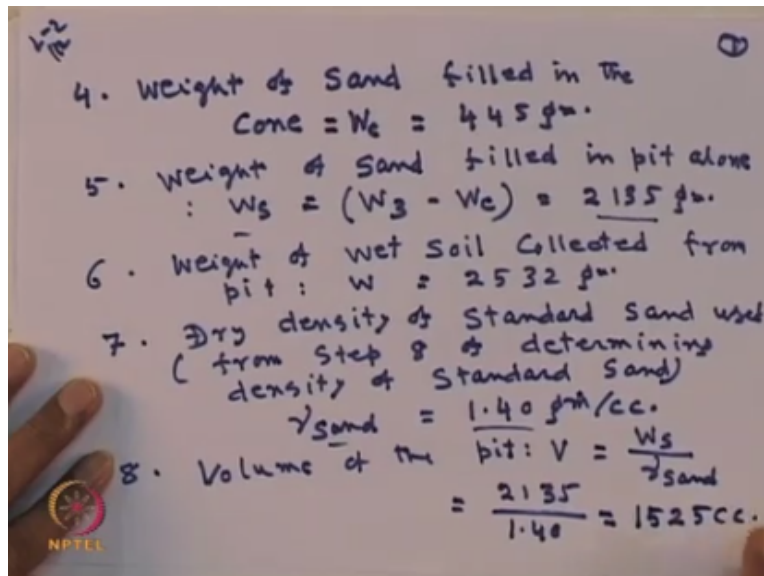 4. Weight of Sand filled in the
Cone = Wc = 445 gm.
5. Weight of Sand filled in pit alone
: Ws = (W3 - Wc) = 2135 gm.
6. Weight of wet soil Collected from
pit : W = 2532 gm.
7. Dry density of Standard Sand used
( from Step 8 of determining
density of Standard Sand)
γsand = 1.40 gm/cc.
8. Volume of the pit: V = Ws / γsand
= 2135 / 1.40 = 1525 cc.
NPTEL